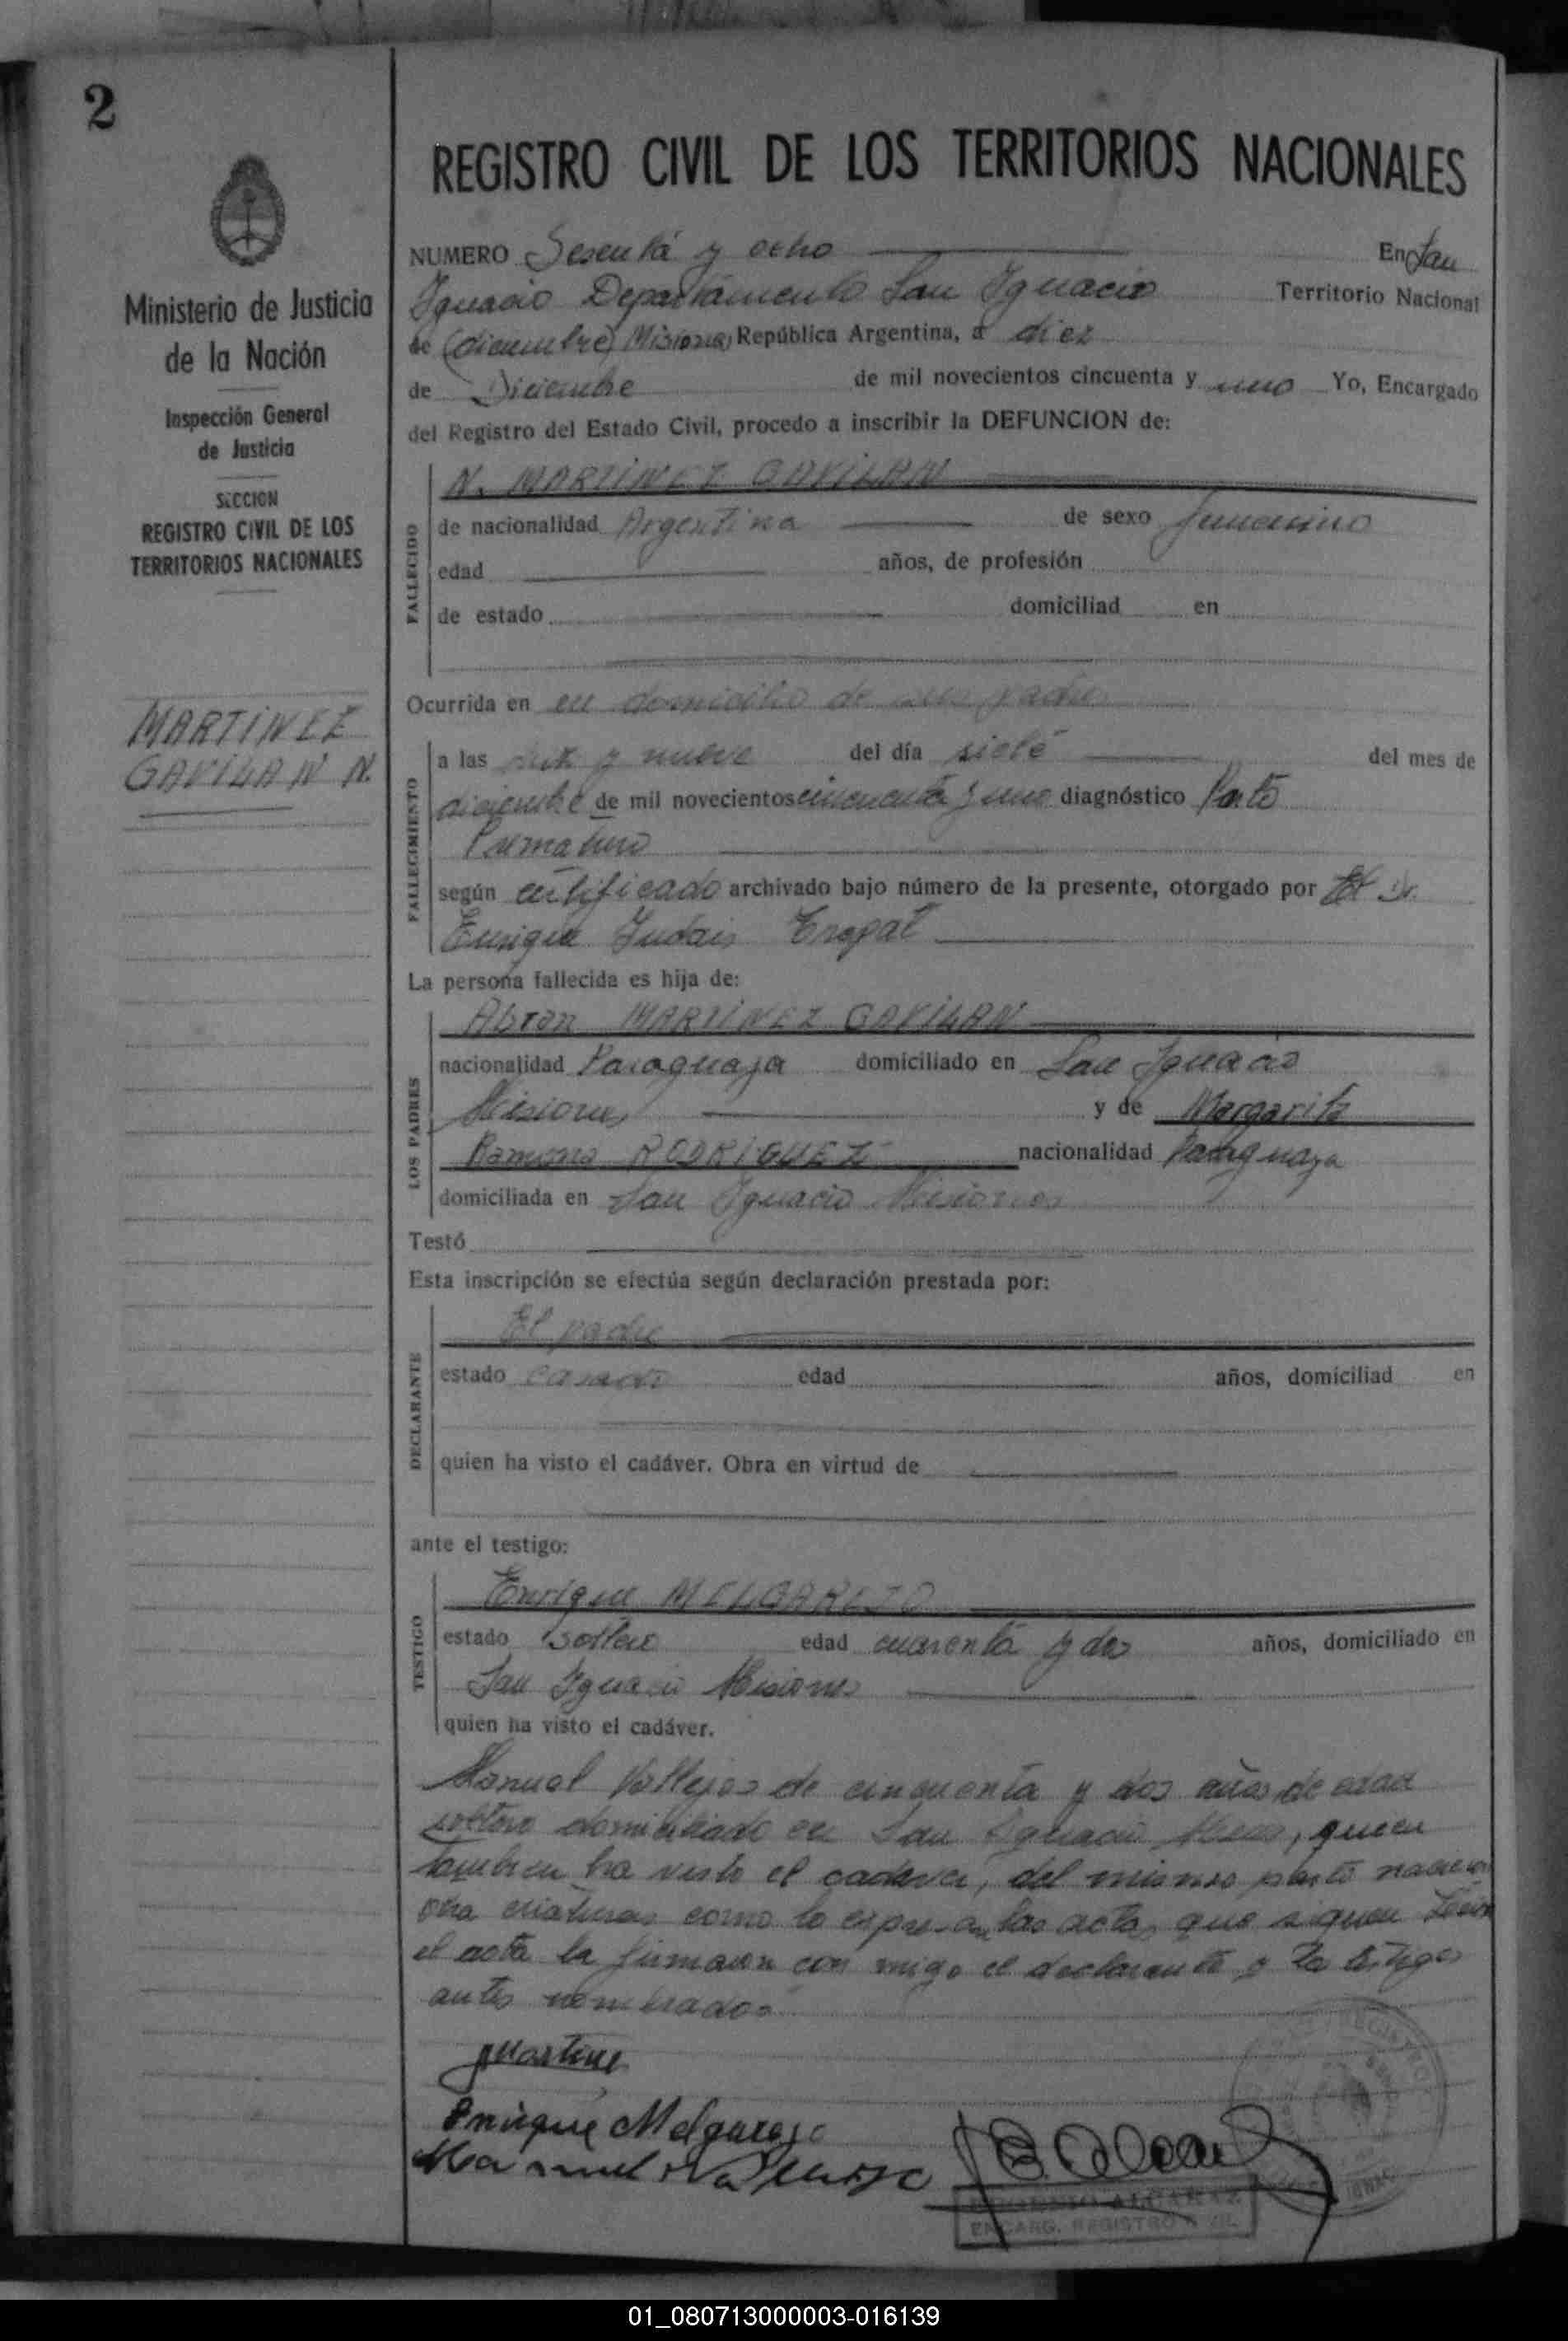 2
REGISTRO CIVIL DE LOS TERRITORIOS NACIONALES
Ministerio de Justicia
de la Nación
Inspección General
de Justicia
SECCION
REGISTRO CIVIL DE LOS
TERRITORIOS NACIONALES
MARTINEZ
GAVILAN N.
NUMERO Sesenta y ocho En San
Ignacio Departamento San Ignacio Territorio Nacional
de (diciembre) Misiones República Argentina, a diez
de Diciembre de mil novecientos cincuenta y uno Yo, Encargado
del Registro del Estado Civil, procedo a inscribir la DEFUNCION de:
FALLECIDO
N. MARTINEZ GAVILAN
de nacionalidad Argentina de sexo femenino
edad años, de profesión
de estado domiciliad en
Ocurrida en en domicilio de sus padres
FALLECIMIENTO
a las diez y nueve del día siete del mes de
diciembre de mil novecientos cincuenta y uno diagnóstico Parto
Prematuro
según certificado archivado bajo número de la presente, otorgado por El Dr.
Enrique
La persona fallecida es hija de:
LOS PADRES
Abran MARTINEZ GAVILAN
nacionalidad Paraguaya domiciliado en San Ignacio
Misiones y de Margarita
Ramona RODRIGUEZ nacionalidad Paraguaya
domiciliada en San Ignacio Misiones
Testó
Esta inscripción se efectúa según declaración prestada por:
DECLARANTE
El padre
estado casado edad años, domiciliad en
quien ha visto el cadáver. Obra en virtud de
ante el testigo:
TESTIGO
Enrique MELGAREJO
estado soltero edad cuarenta y dos años, domiciliado en
San Ignacio Misiones
quien ha visto el cadáver.
Manuel Vallejos de cincuenta y dos años de edad
soltero domiciliado en San Ignacio Mnes, quien
tambien ha visto el cadaver, del mismo parto nacieron
otra criaturas como lo expresan las actas que siguen
el acta la firmaron con migo el declarante y los testigos
antes nombrados
Enrique Melgarejo
ENCARG. REGISTRO CIVIL
01_080713000003-016139